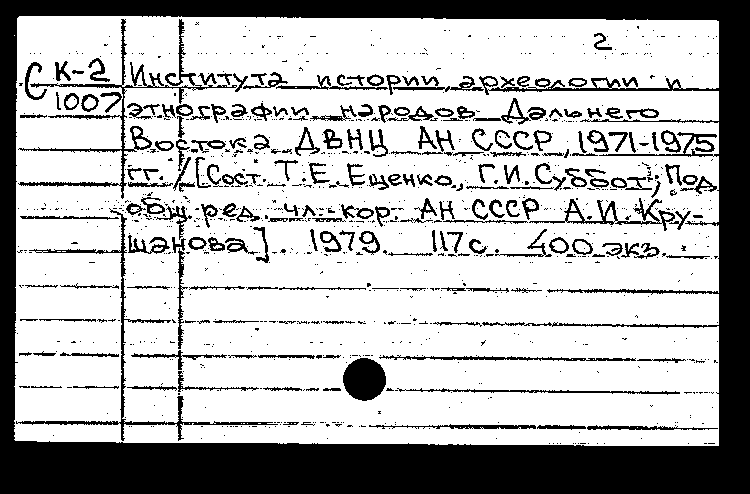 2
С К-2
1007
Института истории, археологии и
этнографии народов Дальнего
Востока ДВНЦ АН СССР, 1971-1975
гг. / [Сост. Т.Е. Ещенко, Г.И. Суббот; Под
общ. ред. чл.-кор. АН СССР А.И. Кру-
шанова]. 1979. 117 с. 400 экз.